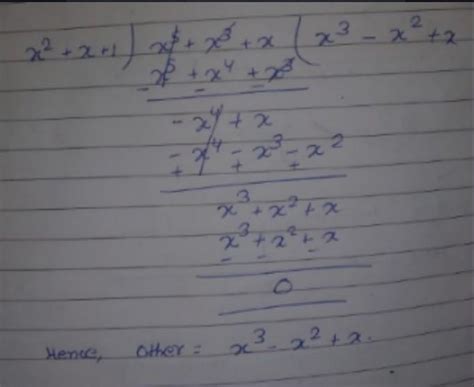 x² + x + 1 ) x⁵ + x³ + x ( x³ - x² + x
x⁵ + x⁴ + x³
- - -
- x⁴ + x
- x⁴ - x³ - x²
+ + +
x³ + x² + x
x³ + x² + x
- - -
0
Hence, other = x³ - x² + x.